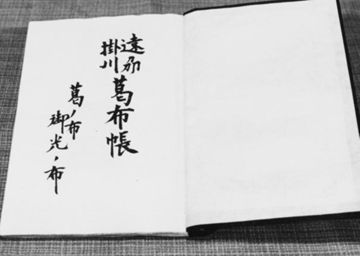 遠州
掛川
葛布帳
葛ノ布
御光ノ布